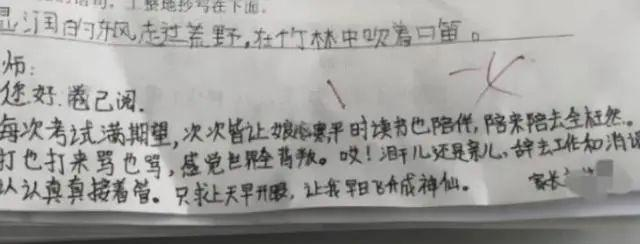 的语句，工整地抄写在下面。
湿润的东风走过荒野，在竹林中吹着口笛。
师：
您好.卷已阅.
每次考试满期望，次次皆让娘心寒平时读书也陪伴，陪来陪去全枉然。
打也打来骂也骂，感觉世界全背叛。哎！泪干儿还是亲儿，辞去工作和消
认认真真接着管。只求上天早开眼，让我早日飞升成神仙。 家长